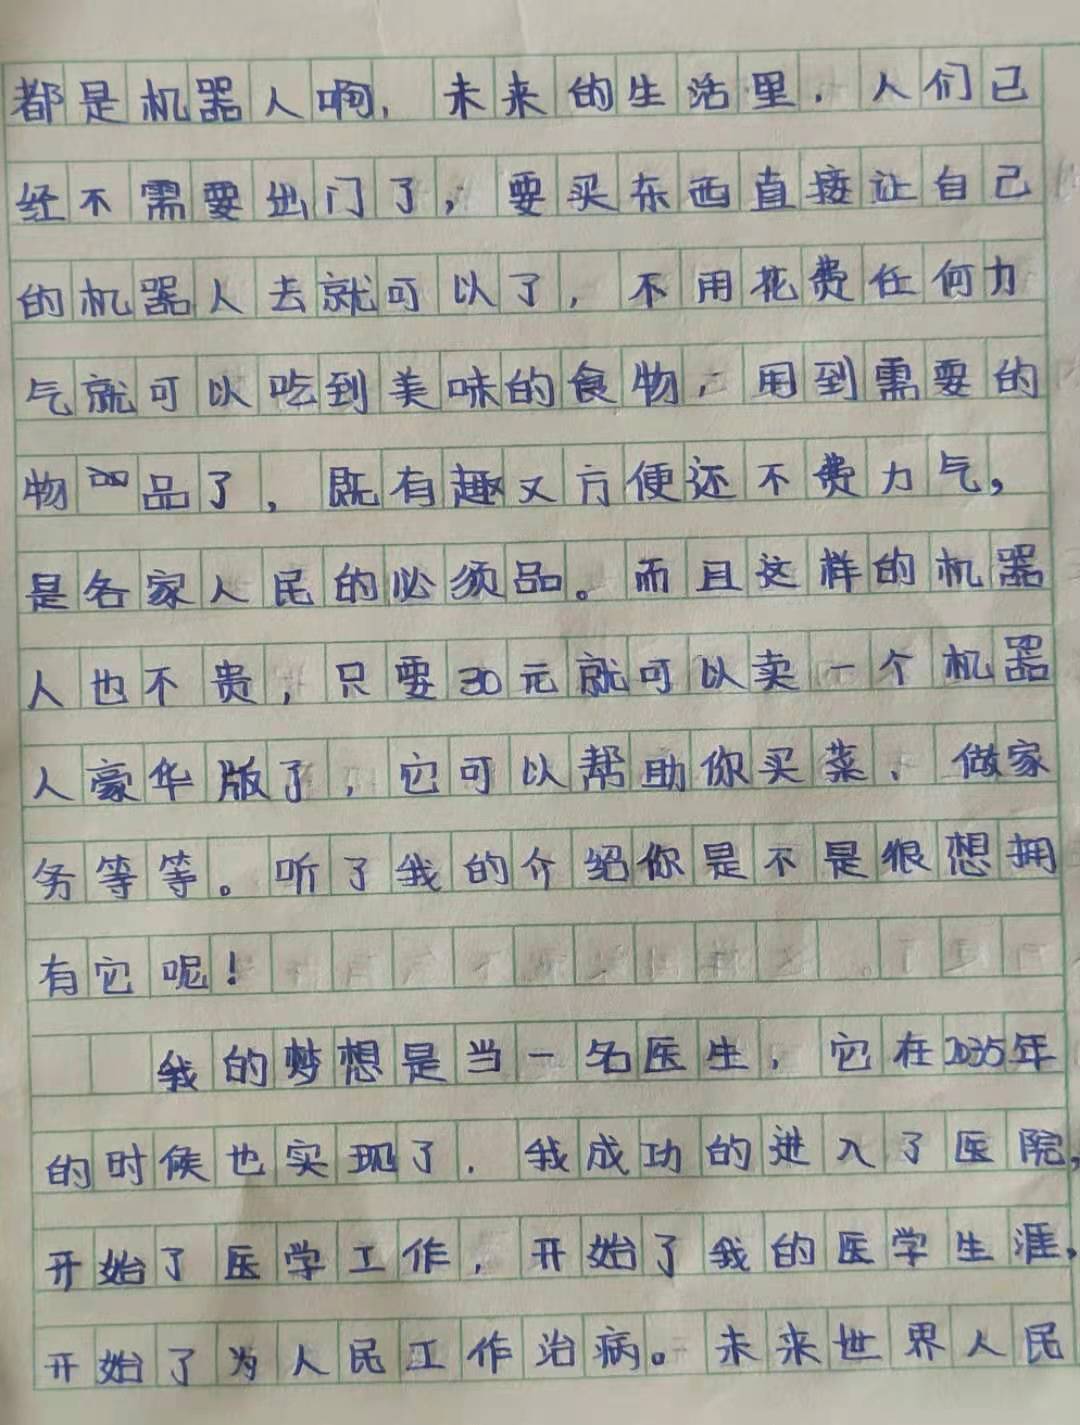 都是机器人啊,未来的生活里,人们已
经不需要出门了,要买东西直接让自己
的机器人去就可以了,不用花费任何力
气就可以吃到美味的食物,用到需要的
物品了,既有趣又方便还不费力气,
是各家人民的必须品。而且这样的机器
人也不贵,只要30元就可以卖一个机器
人豪华版了,它可以帮助你买菜、做家
务等等。听了我的介绍你是不是很想拥
有它呢!
我的梦想是当一名医生,它在2035年
的时候也实现了.我成功的进入了医院,
开始了医学工作,开始了我的医学生涯,
开始了为人民工作治病。未来世界人民